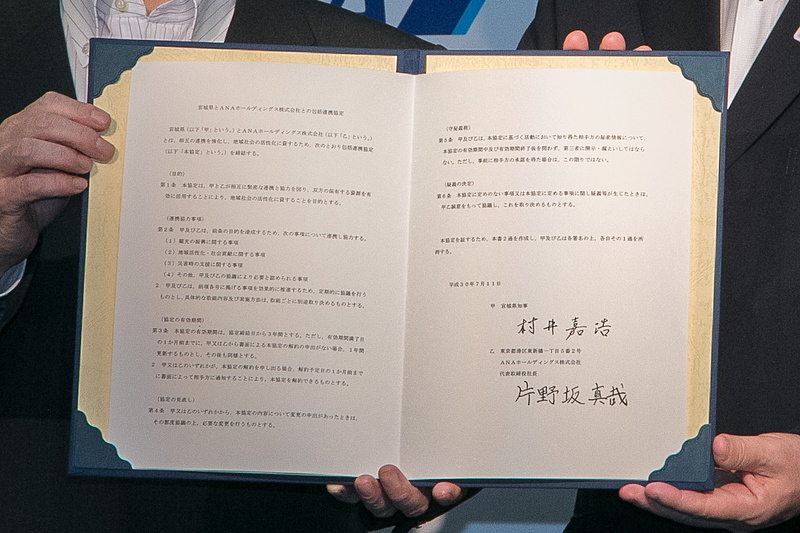 宮城県とANAホールディングス株式会社との包括連携協定
宮城県(以下「甲」という。)とANAホールディングス株式会社(以下「乙」という。)
とは、相互の連携を強化し、地域社会の活性化に資するため、次のとおり包括連携協定
(以下「本協定」という。)を締結する。
(目的)
第1条 本協定は、甲と乙が相互に緊密な連携と協力を図り、双方の保有する資源を有
効に活用することにより、地域社会の活性化に資することを目的とする。
(連携協力事項)
第2条 甲及び乙は、前条の目的を達成するため、次の事項について連携し協力する。
(1)観光の振興に関する事項
(2)地域活性化・社会貢献に関する事項
(3)災害時の支援に関する事項
(4)その他、甲及び乙の協議により必要と認められる事項
2 甲及び乙は、前項各号に掲げる事項を効果的に推進するため、定期的に協議を行う
ものとし、具体的な取組内容及び実施方法は、取組ごとに別途取り決めるものとする。
(協定の有効期間)
第3条 本協定の有効期間は、協定締結日から3年間とする。ただし、有効期間満了日
の1か月前までに、甲又は乙から書面による本協定の解約の申出がない場合、1年間
更新するものとし、その後も同様とする。
2 甲又は乙のいずれかが、本協定の解約を申し出る場合、解約予定日の1か月前まで
に書面によって相手方に通知することにより、本協定を解約できるものとする。
(協定の見直し)
第4条 甲又は乙のいずれかから、本協定の内容について変更の申出があったときは、
その都度協議の上、必要な変更を行うものとする。
(守秘義務)
第5条 甲及び乙は、本協定に基づく活動において知り得た相手方の秘密情報について、
本協定の有効期間中及び有効期間終了後を問わず、第三者に開示・漏えいしてはなら
ない。ただし、事前に相手方の承諾を得た場合は、この限りではない。
(疑義の決定)
第6条 本協定に定めのない事項又は本協定に定める事項に関し疑義等が生じたときは、
甲乙誠意をもって協議し、これを取り決めるものとする。
本協定を証するため、本書2通を作成し、甲及び乙は各署名の上、各自その1通を所
持する。
平成30年7月11日
甲 宮城県知事
村井嘉浩
乙 東京都港区東新橋一丁目5番2号
ANAホールディングス株式会社
代表取締役社長
片野坂真哉